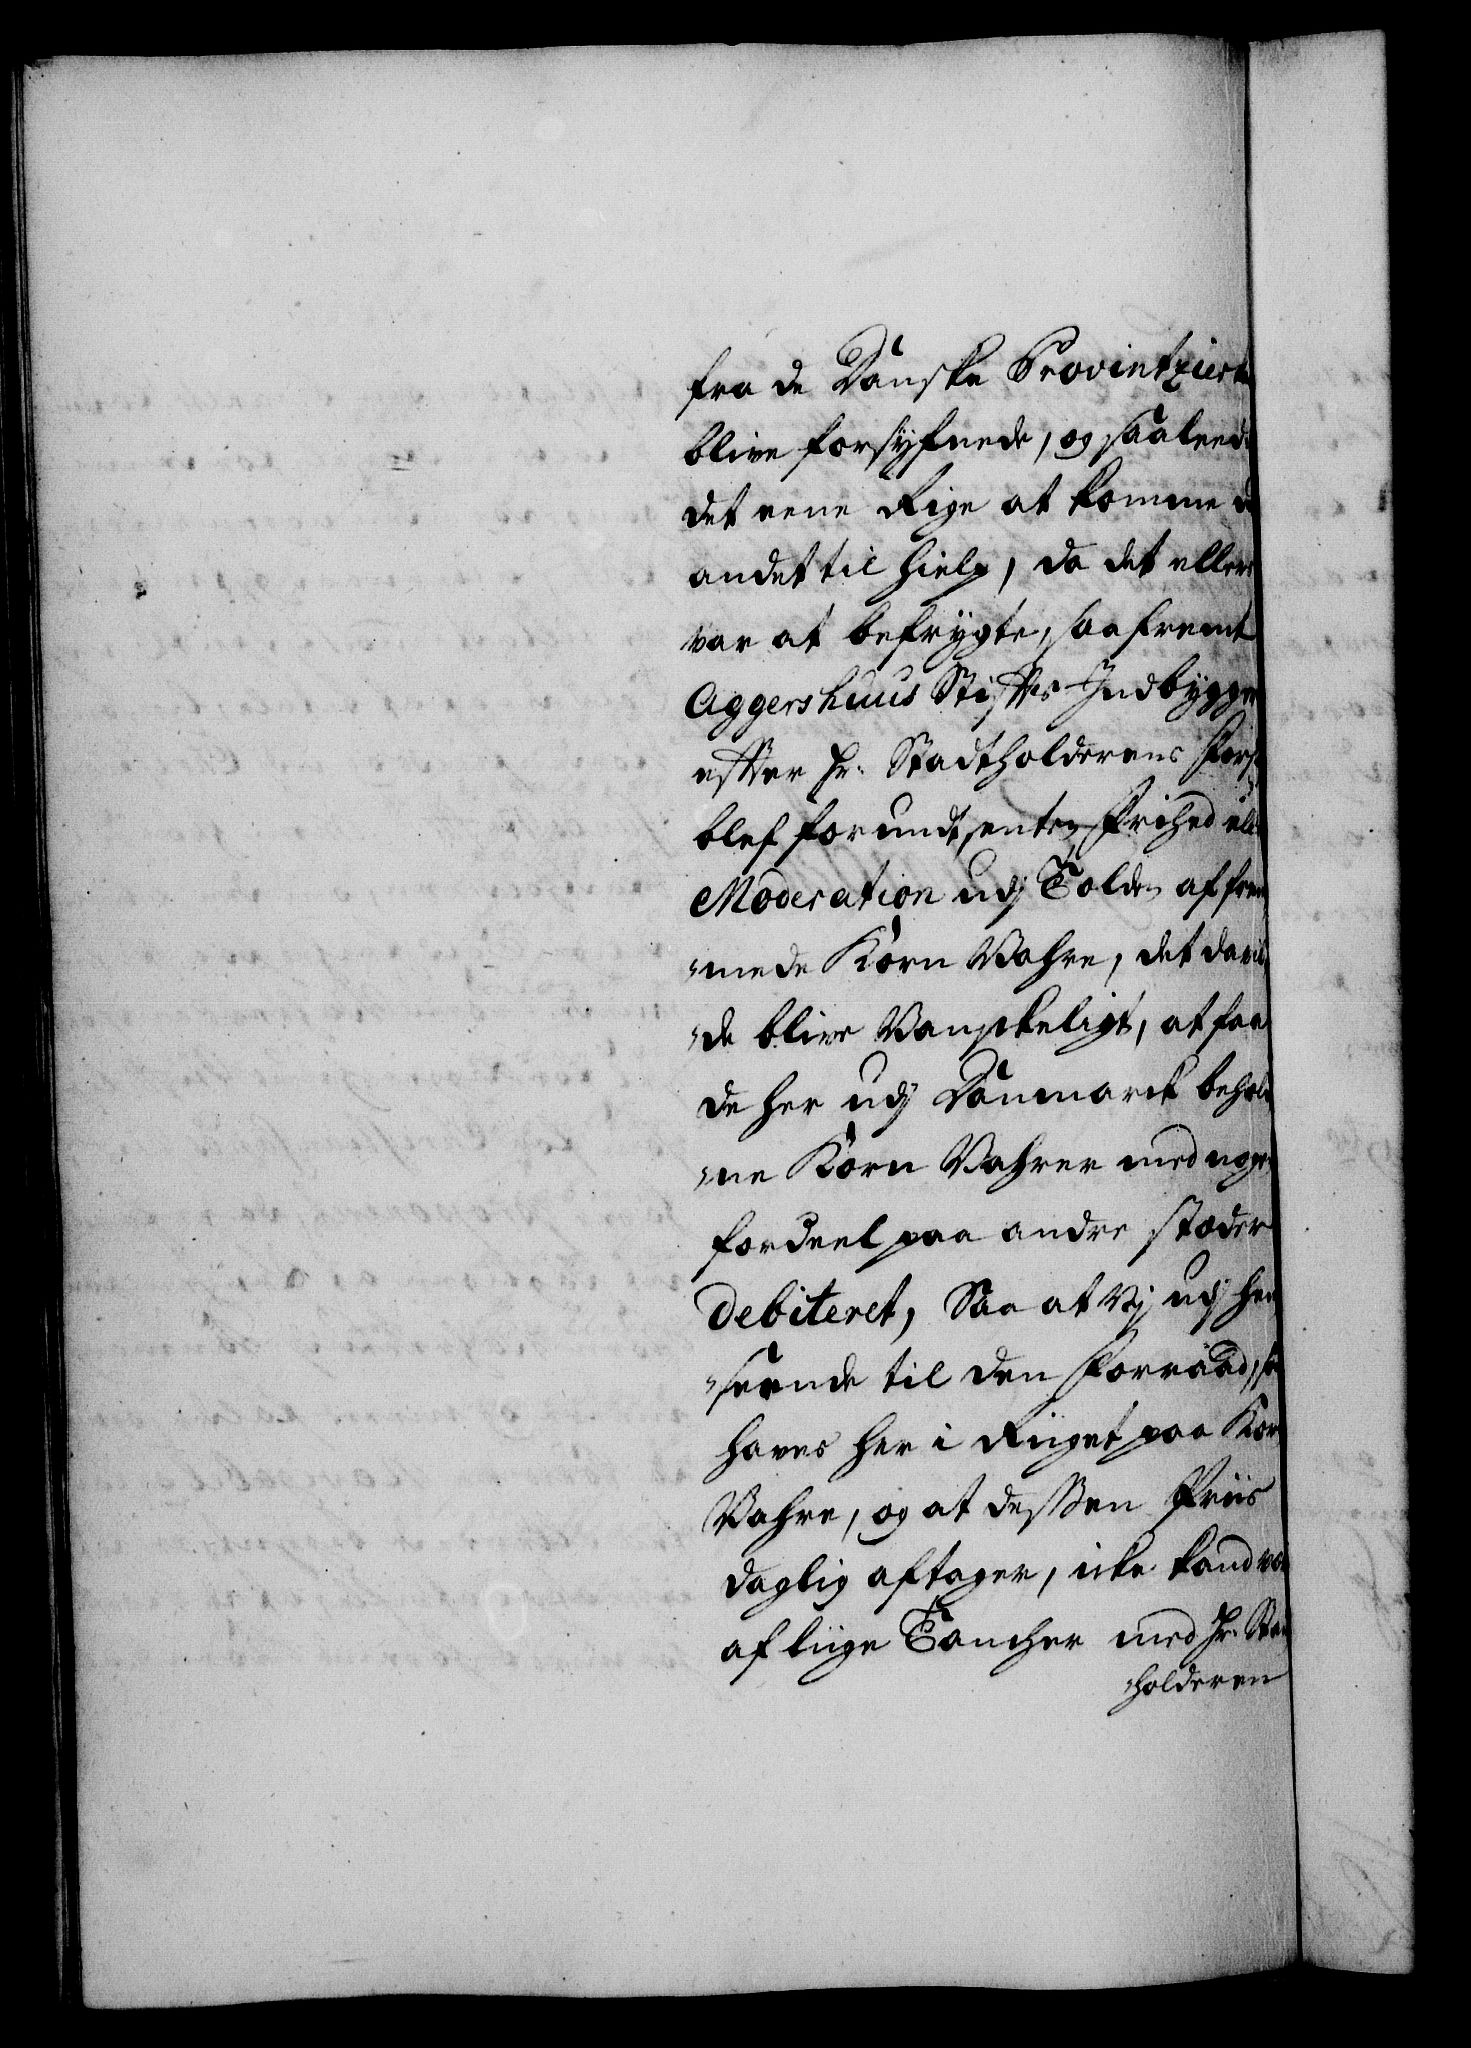 fra de Danske Provintzier
blive forsyfnede, og saaleed
det eene Rige at komme d
andet til hielp, da det ellers
var at befrygte, saafremt
Aggershuus Stifftes Indbygger
effter Hr. Stadtholderens Forsl
blef forundt enten Frihed ell
Moderation udj Tolden af frem
mede Korn Vahre, det da vil
de blive Vanskeligt, at faa
de her udj Danmarck behold
ne Korn Vahrer med noge
fordeel paa andre stæder
debiteret, Saa at Vj udj hen
seende til den Forraad, so
haves her i Riiget paa Kor
Vahre, og at dessen Priis
daglig aftager, icke kand væ
af liige Tancher med Hr. Sta
holderen